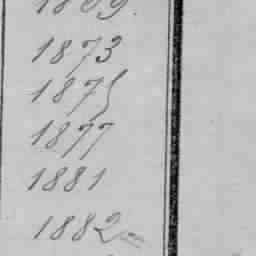 1869.
1873
1875
1877
1881
1882=